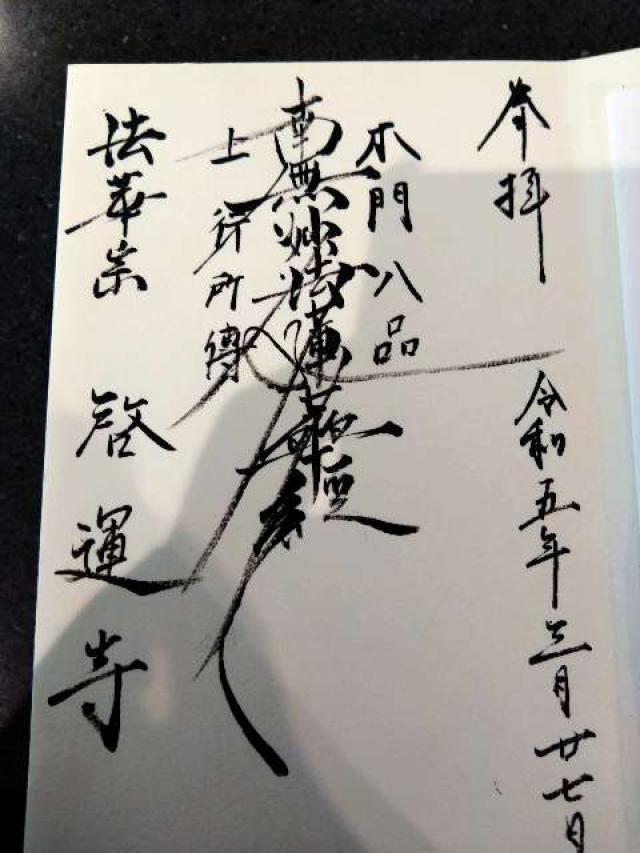 奉拝
令和五年三月廿七日
本門八品
南無妙法蓮華経
上行所傳
法華宗
啓運寺